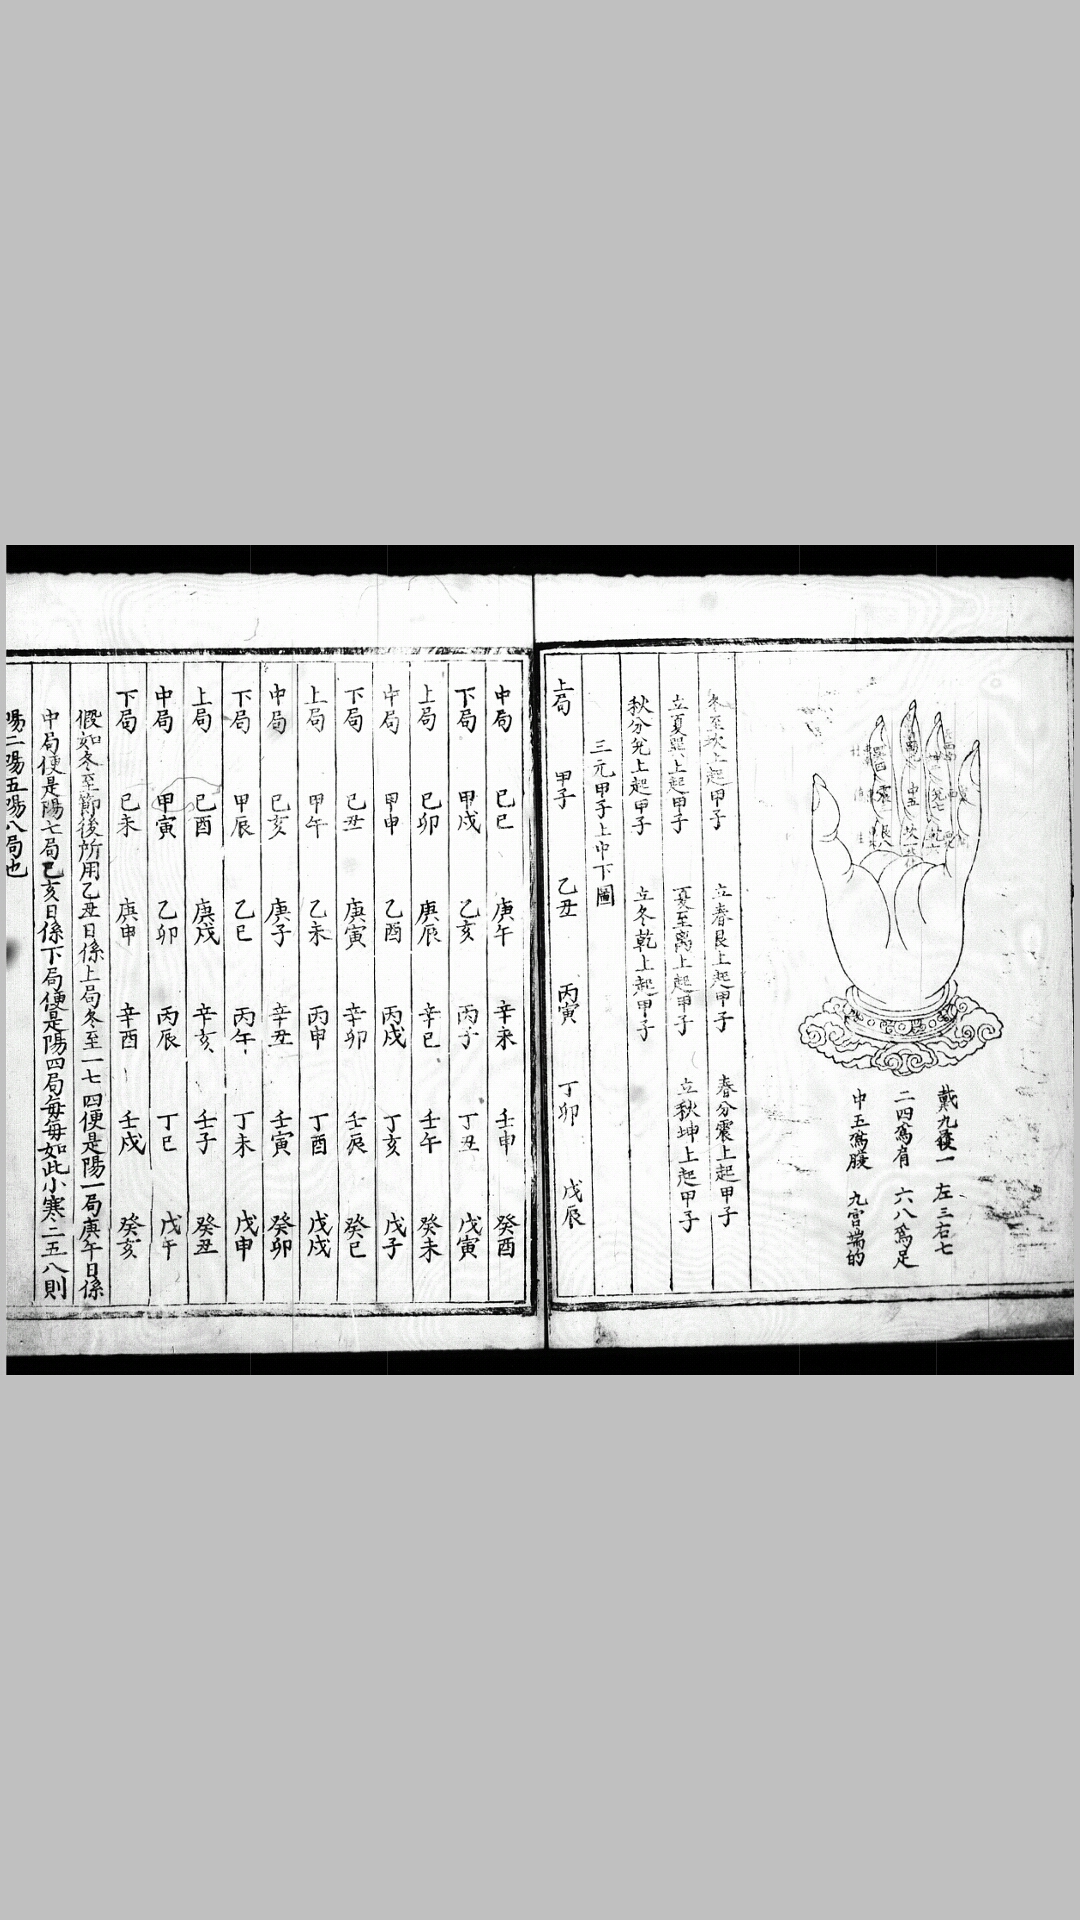 戴九履一 左三右七
二四為肩 六八為足
中五為腰 九宮端的
冬至坎上起甲子 立春艮上起甲子 春分震上起甲子
立夏巽上起甲子 夏至离上起甲子 立秋坤上起甲子
秋分兌上起甲子 立冬乾上起甲子
三元甲子上中下圖
上局 甲子 乙丑 丙寅 丁卯 戊辰
中局 己巳 庚午 辛未 壬申 癸酉
下局 甲戌 乙亥 丙子 丁丑 戊寅
上局 己卯 庚辰 辛巳 壬午 癸未
中局 甲申 乙酉 丙戌 丁亥 戊子
下局 己丑 庚寅 辛卯 壬辰 癸巳
上局 甲午 乙未 丙申 丁酉 戊戌
中局 己亥 庚子 辛丑 壬寅 癸卯
下局 甲辰 乙巳 丙午 丁未 戊申
上局 己酉 庚戌 辛亥 壬子 癸丑
中局 甲寅 乙卯 丙辰 丁巳 戊午
下局 己未 庚申 辛酉 壬戌 癸亥
假如冬至節後所用乙丑日係上局冬至一七四便是陽一局庚午日係
中局便是陽七局己亥日係下局便是陽四局每每如此小寒二五八則
陽二陽五陽八局也